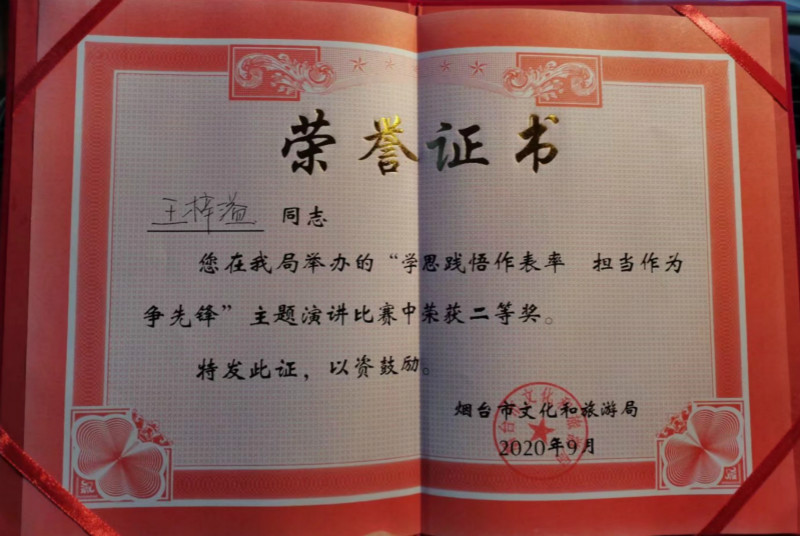 荣誉证书
王梓溢 同志
您在我局举办的“学思践悟作表率 担当作为
争先锋”主题演讲比赛中荣获二等奖。
特发此证，以资鼓励。
烟台市文化和旅游局
2020年9月